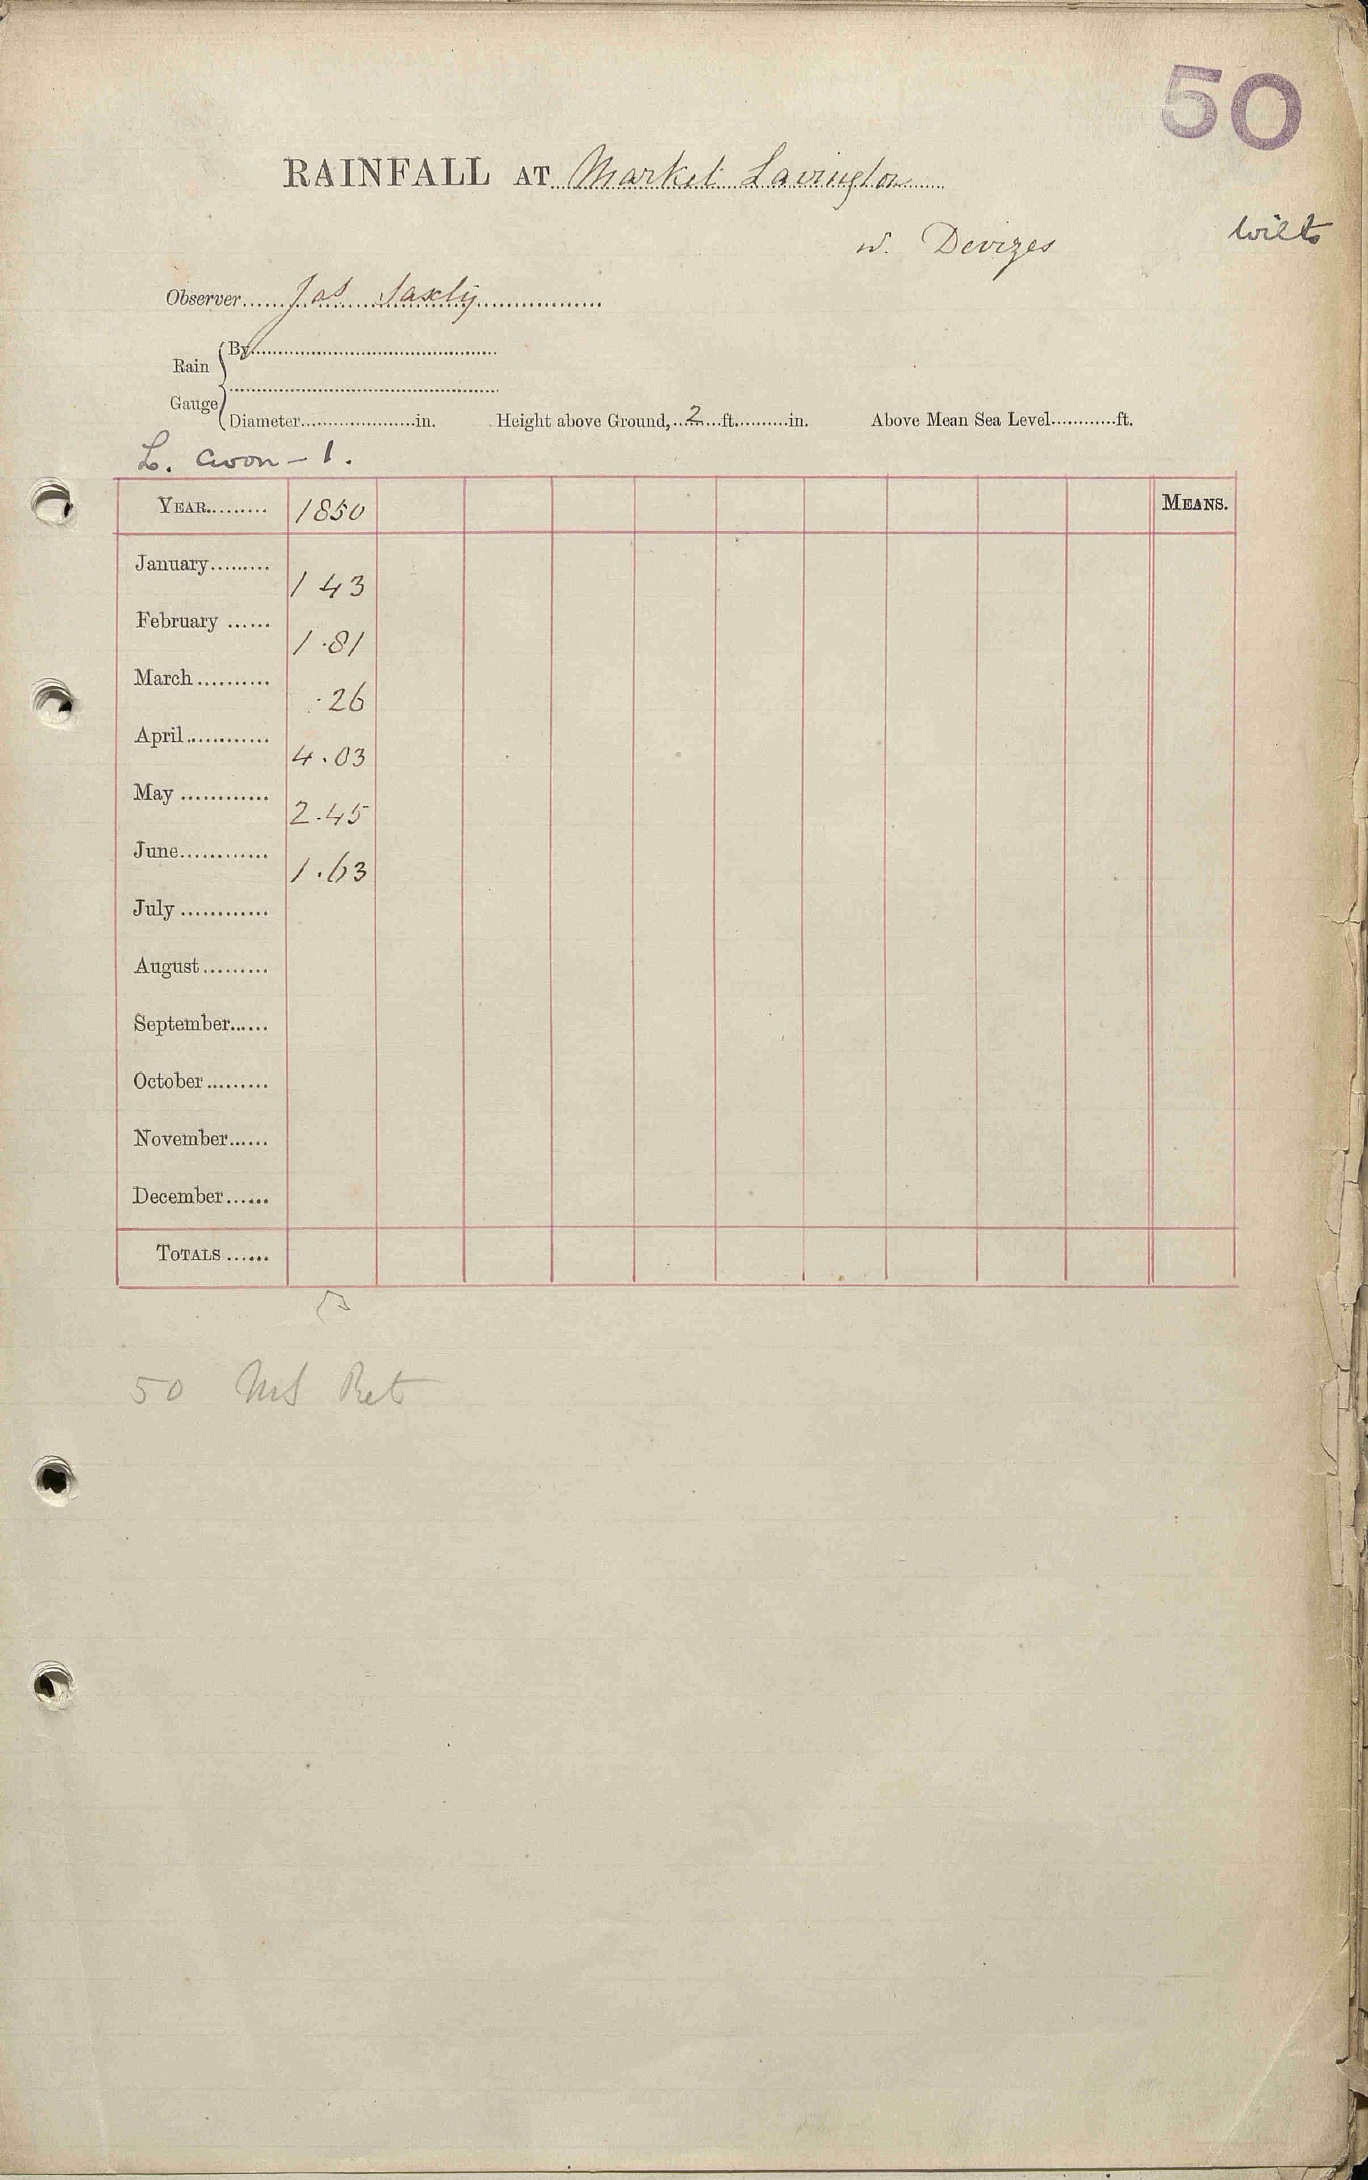 50
RAINFALL AT Market Lavington
nr. Devizes
Wilts
Observer Jas Saxty
Rain Gauge
By
Diameter in. Height above Ground, 2 ft. in. Above Mean Sea Level ft.
L. Avon - 1.
YEAR 1850 MEANS.
January 1 43
February 1.81
March .26
April 4.03
May 2.45
June 1.63
July
August
September
October
November
December
TOTALS
50 MS Ret